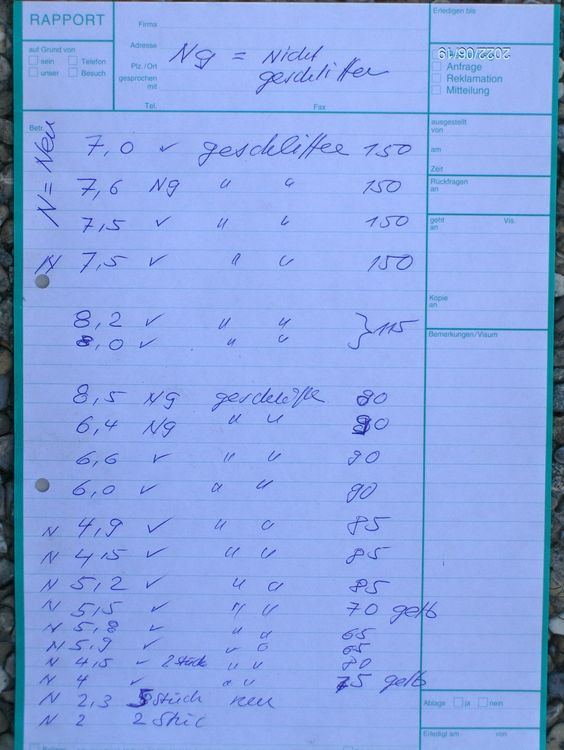 RAPPORT
Firma
Erledigen bis
auf Grund von
sein Telefon
unser Besuch
Adresse
Plz./Ort
gesprochen
mit
Tel. Fax
Ng = Nicht
geschliffen
2022/06/19
Anfrage
Reklamation
Mitteilung
Betr.
N = Neu
ausgestellt
von
am
Zeit
Rückfragen
an
geht
an
Vis.
Kopie
an
Bemerkungen/Visum
7,0 ✓ geschliffen 150
7,6 Ng " " 150
7,5 ✓ " " 150
N 7,5 ✓ " " 150
8,2 ✓ " " } 115
8,0 ✓ " "
8,5 Ng geschliffen 90
6,4 Ng " " 90
6,6 ✓ " " 90
6,0 ✓ " " 90
N 4,9 ✓ " " 85
N 4,5 ✓ " " 85
N 5,2 ✓ " " 85
N 5,5 ✓ " " 70 gelb
N 5,8 ✓ " " 65
N 5,9 ✓ " " 65
N 4,5 ✓ 2 Stück " " 80
N 4 ✓ " " 75 gelb
N 2,3 5 Stück neu
N 2 2 Stüc
Ablage ja nein
Erledigt am von